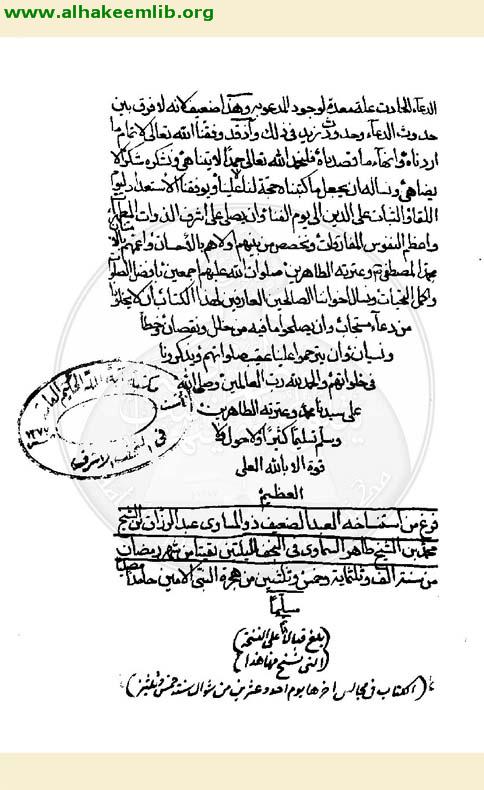 www.alhakeemlib.org
الدعاء الحادث علة معدة لوجود المدعو به وهذا ضعيف لانه لا فرق بين
حدوث الدعاء وحدوث في ذلك وقد وفقنا الله تعالى لاتمام ما
اردناه وانهاء ما قصدناه فلحمد الله تعالى حمدا لا يتناهى ونشكره شكرا لا
يضاهى ونساله ان يجعل ما كتبناه حجة لنا لا علينا ويوفقنا الاستعداد ليوم
اللقاء والثبات على الدين الى يوم الفناء وان يصلى على اشرف الذوات المطهرة
واعظم النفوس المفارقات ويخصص من بينهم واعمهم
محمد المصطفى وعترته الطاهرين صلوات الله عليهم اجمعين بافضل الصلوات
واكمل التحيات ونسال اخواننا الصالحين العارفين لهذا الكتاب ان لا يخلونا
من دعاء مستجاب وان يصلحوا ما فيه من خلل ونقصان
ونسيان وان يترحموا علينا عقيب صلواتهم ويذكرونا
فى خلواتهم والحمد لله رب العالمين وصلى الله
على سيدنا محمد وعترته الطاهرين
وسلم تسليما كثيرا ولا حول ولا
قوة الا بالله العلى
العظيم
فرغ من استنساخه العبد الضعيف ذو المساوى عبد الرزاق بن الشيخ
محمد بن الشيخ طاهر السماوى فى النجف لليلتين بقيتا من شهر رمضان
من سنة الف وثلثماية وخمس وثلثين من هجرة النبى الامين حامدا مصليا
مسلما
(بلغ قبالا على النسخة)
(التى نسخ منها هذا)
(الكتاب فى مجالس اخرها يوم احد وعشرين من شوال سنة خمس وثلثين)